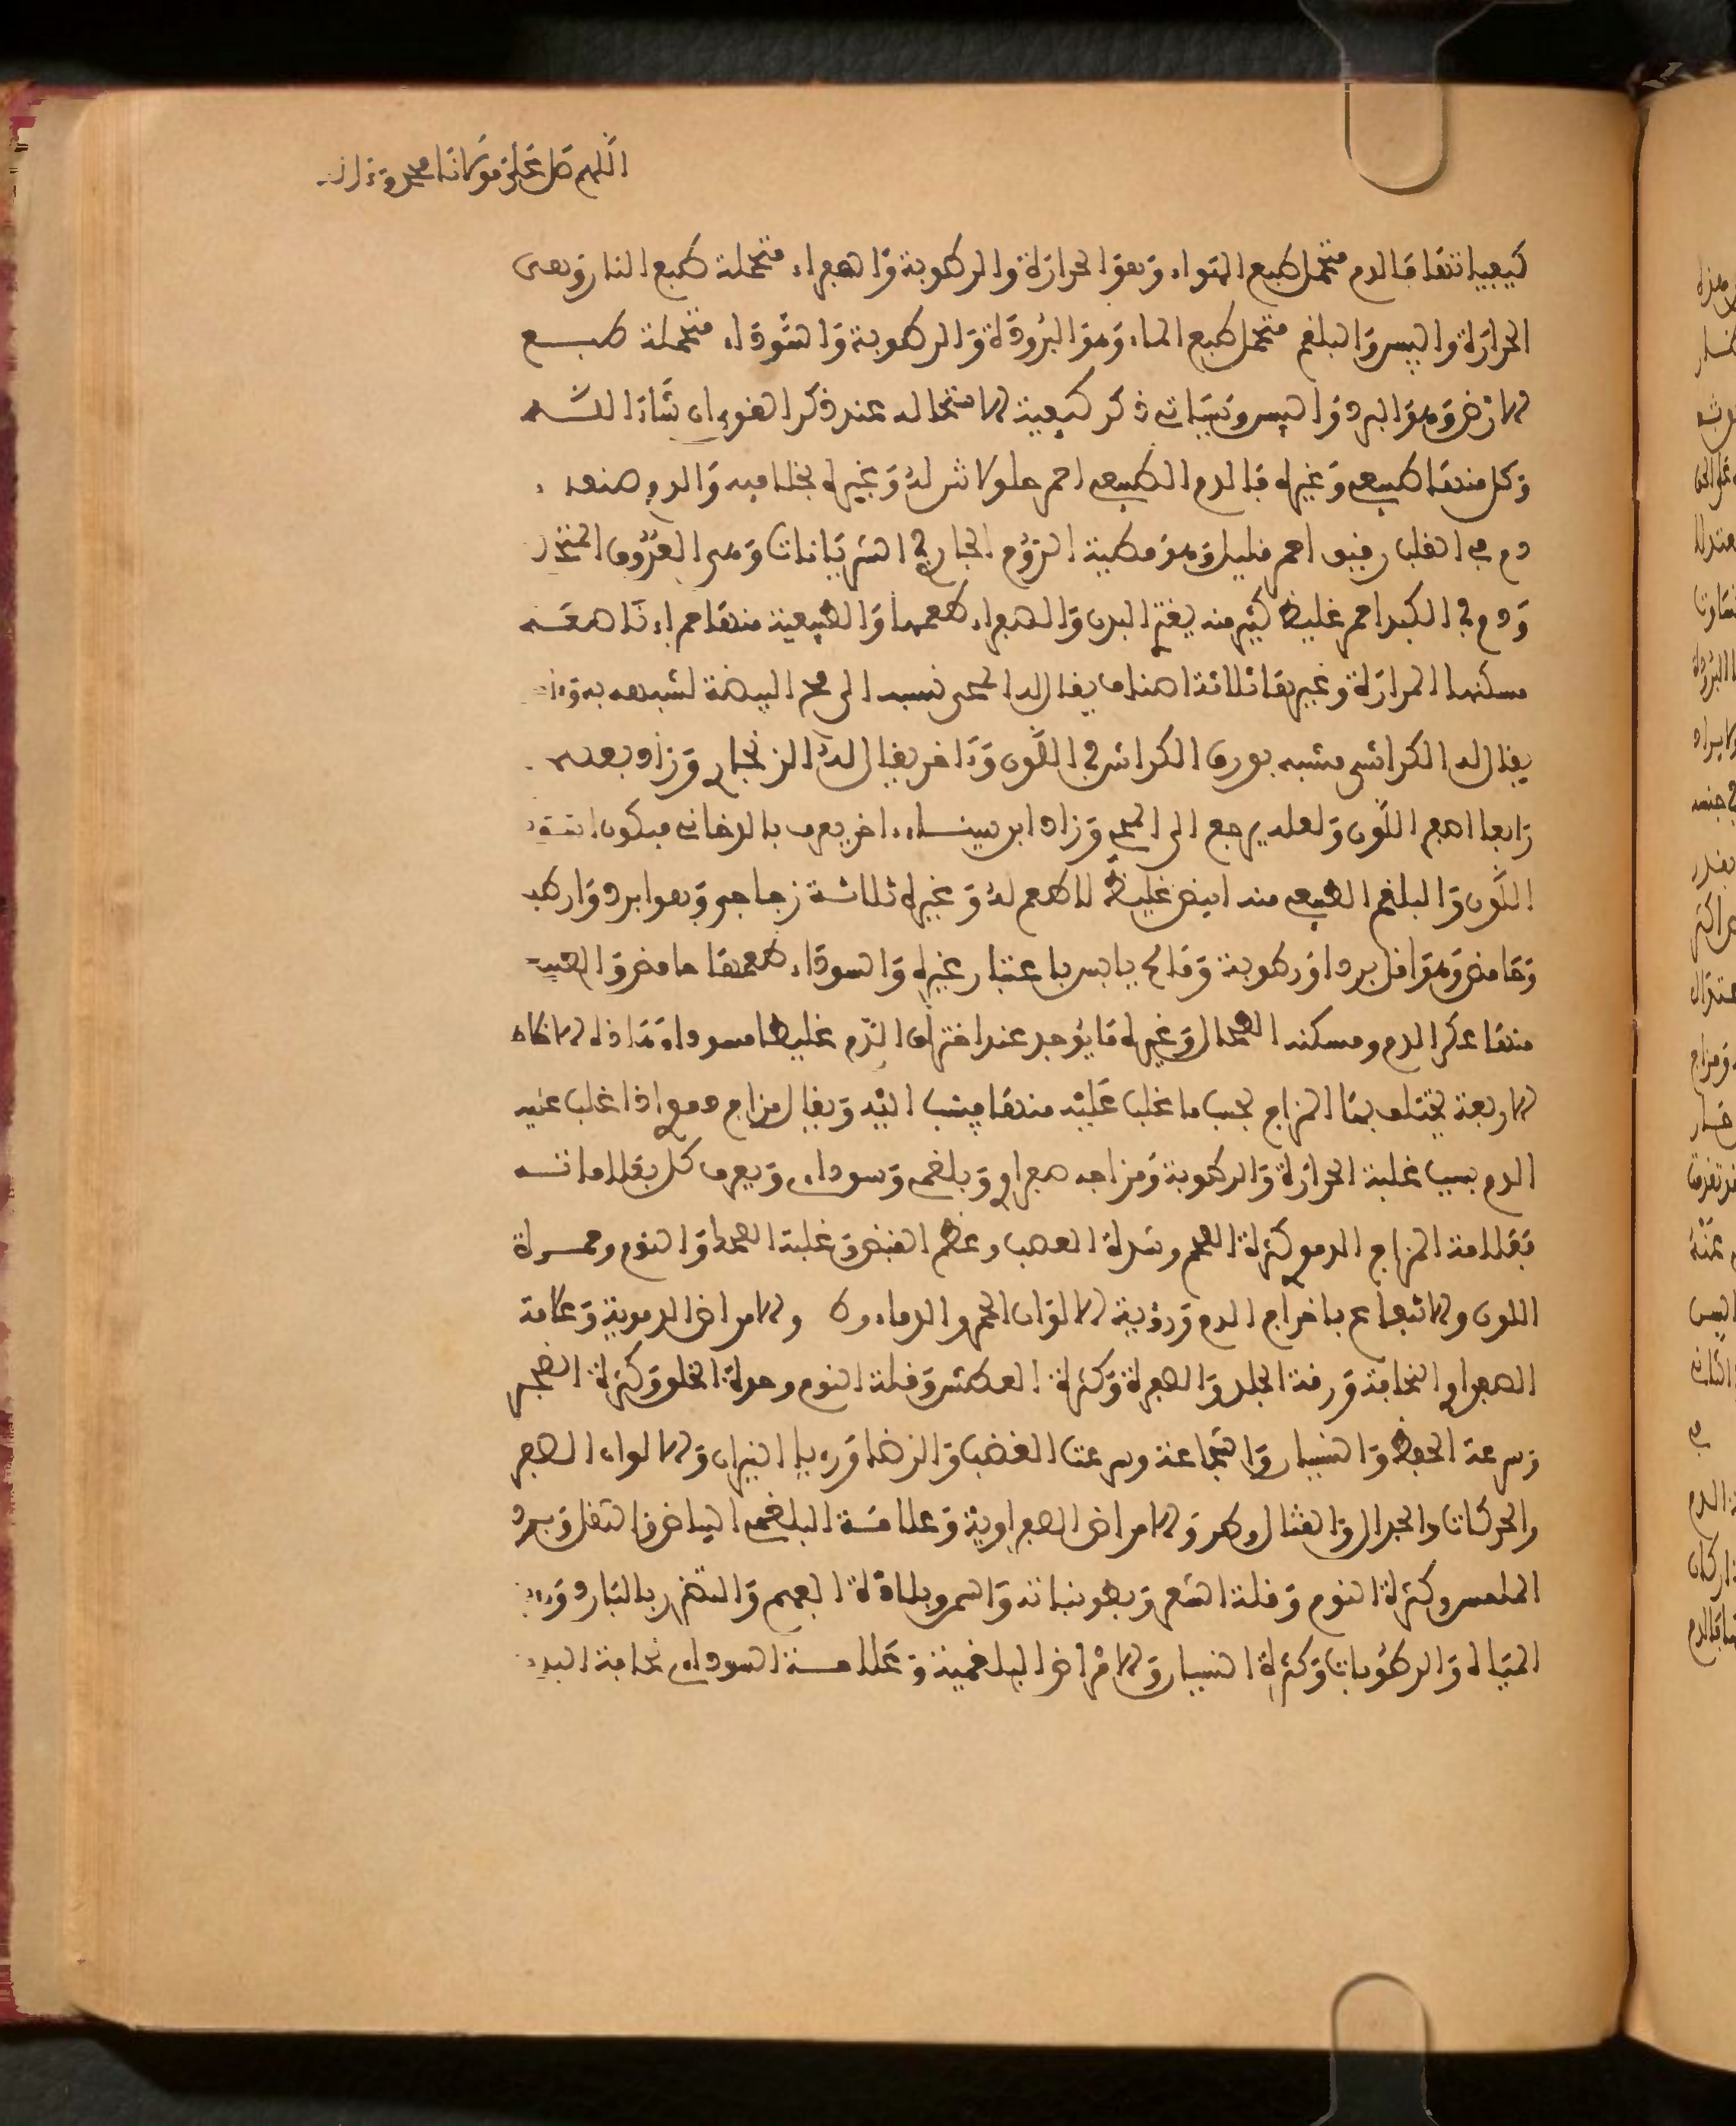 اللهم صل على مولانا محمد وءاله
كيفياتها فالدم متحمل طبع الهواء وهو الحرارة والرطوبة والصفراء متحملة طبع النار وهى
الحرارة واليبس والبلغم متحمل طبع الماء وهو البرودة والرطوبة والسوداء متحملة طبع
الارض وهو البرد واليبس وسياتى ذكر كيفية الاستحالة عند ذكر القوى ان شاء الله
وكل منها طبيعى وغيره فالدم الطبيعى احمر حلو لا نتن له وغيره بخلافه والدم صنفان
دم فى القلب رقيق احمر قليل وهو مطية الروح الجارى فى الشريانات وهى العروق
ودم فى الكبد احمر غليظ كثير منه يغتذى البدن والصفراء طعمها والطبيعية منها حمراء ناصعة
مسكنها المرارة وغيرها ثلاثة اصناف يقال له المحى نسبة الى مح البيضة لشبهه به
يقال له الكراثى مشبه بورق الكراث فى اللون وءاخر يقال له الزنجارى وزاد بعضهم
رابعا اصفر اللون ولعله يرجع الى المحى وزاد ابن سينا ءاخر يعرف بالدخانى فيكون
اللون والبلغم الطبيعى منه ابيض غليظ لا طعم له وغيره ثلاثة زجاجى وهو ابرد وارطب
وحامض وهو اقل بردا ورطوبة ومالح يابس باعتبار غيره والسوداء طعمها حامض والطبيعية
منها عكر الدم ومسكنه الطحال وغيره ما يوجد عند احتراق الدم غليظا مسودا وهاذه الاخلاط
الاربعة يختلف بها المزاج بحسب ما غلب عليه منها فينسب اليه ويقال مزاج دموى اذا غلب عليه
الدم بسبب غلبة الحرارة والرطوبة ومزاجه صفراوى وبلغمى وسوداوى ويعرف كل بعلاماته
فعلامة المزاج الدموى كثرة اللحم وشدة العصب وعظم النبض وغلبة الضحك والنوم وحمرة
اللون والانتفاع باخراج الدم ورؤية الالوان الحمر والدماء والامراض الدموية وعلامة
الصفراوى النحافة ورقة الجلد والصفرة وكثرة العطش وقلة النوم وحدة الخلق وكثرة الضجر
وسرعة الحفظ والنسيان والشجاعة وسرعة الغضب والرضا ورؤيا النيران والالوان الصفر
والحركات والجدال والقتال والامراض الصفراوية وعلامة البلغمى البياض والثقل وبرد
الملمس وكثرة النوم وقلة الشعر وبطؤ نباته والسمر وبلادة الفهم والتضرر بالبارد ورؤية
المياه والرطوبات وكثرة النسيان والامراض البلغمية وعلامة السوداوى نحافة البدن